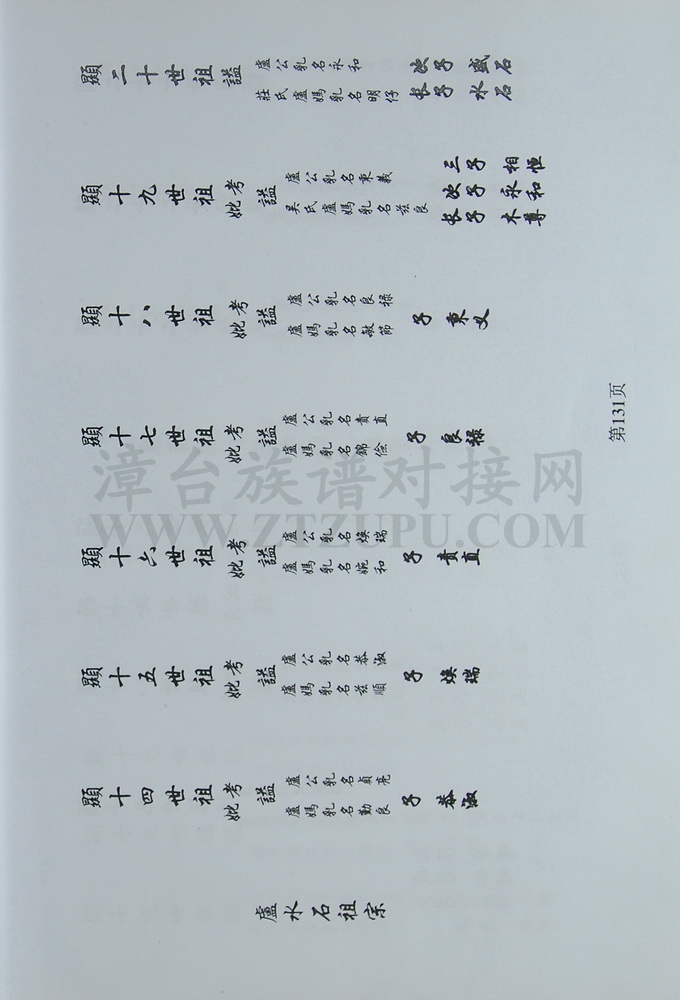 盧水石祖宗
顯十四世祖
考
妣
諡
盧公乳名貞亮
盧媽乳名勤良
子 恭淑
顯十五世祖
考
妣
諡
盧公乳名恭淑
盧媽乳名茲順
子 煥瑞
顯十六世祖
考
妣
諡
盧公乳名煥瑞
盧媽乳名婉和
子 貴直
顯十七世祖
考
妣
諡
盧公乳名貴直
盧媽乳名錦儉
子 良祿
顯十八世祖
考
妣
諡
盧公乳名良祿
盧媽乳名敏節
子 秉义
顯十九世祖
考
妣
諡
盧公乳名秉義
吳氏盧媽乳名茲良
长子 木尊
次子 永和
三子 相恒
顯二十世祖諡
盧公乳名永和
莊氏盧媽乳名明仔
长子 水石
次子 盛石
第131页
漳台族谱对接网
WWW.ZTZUPU.COM